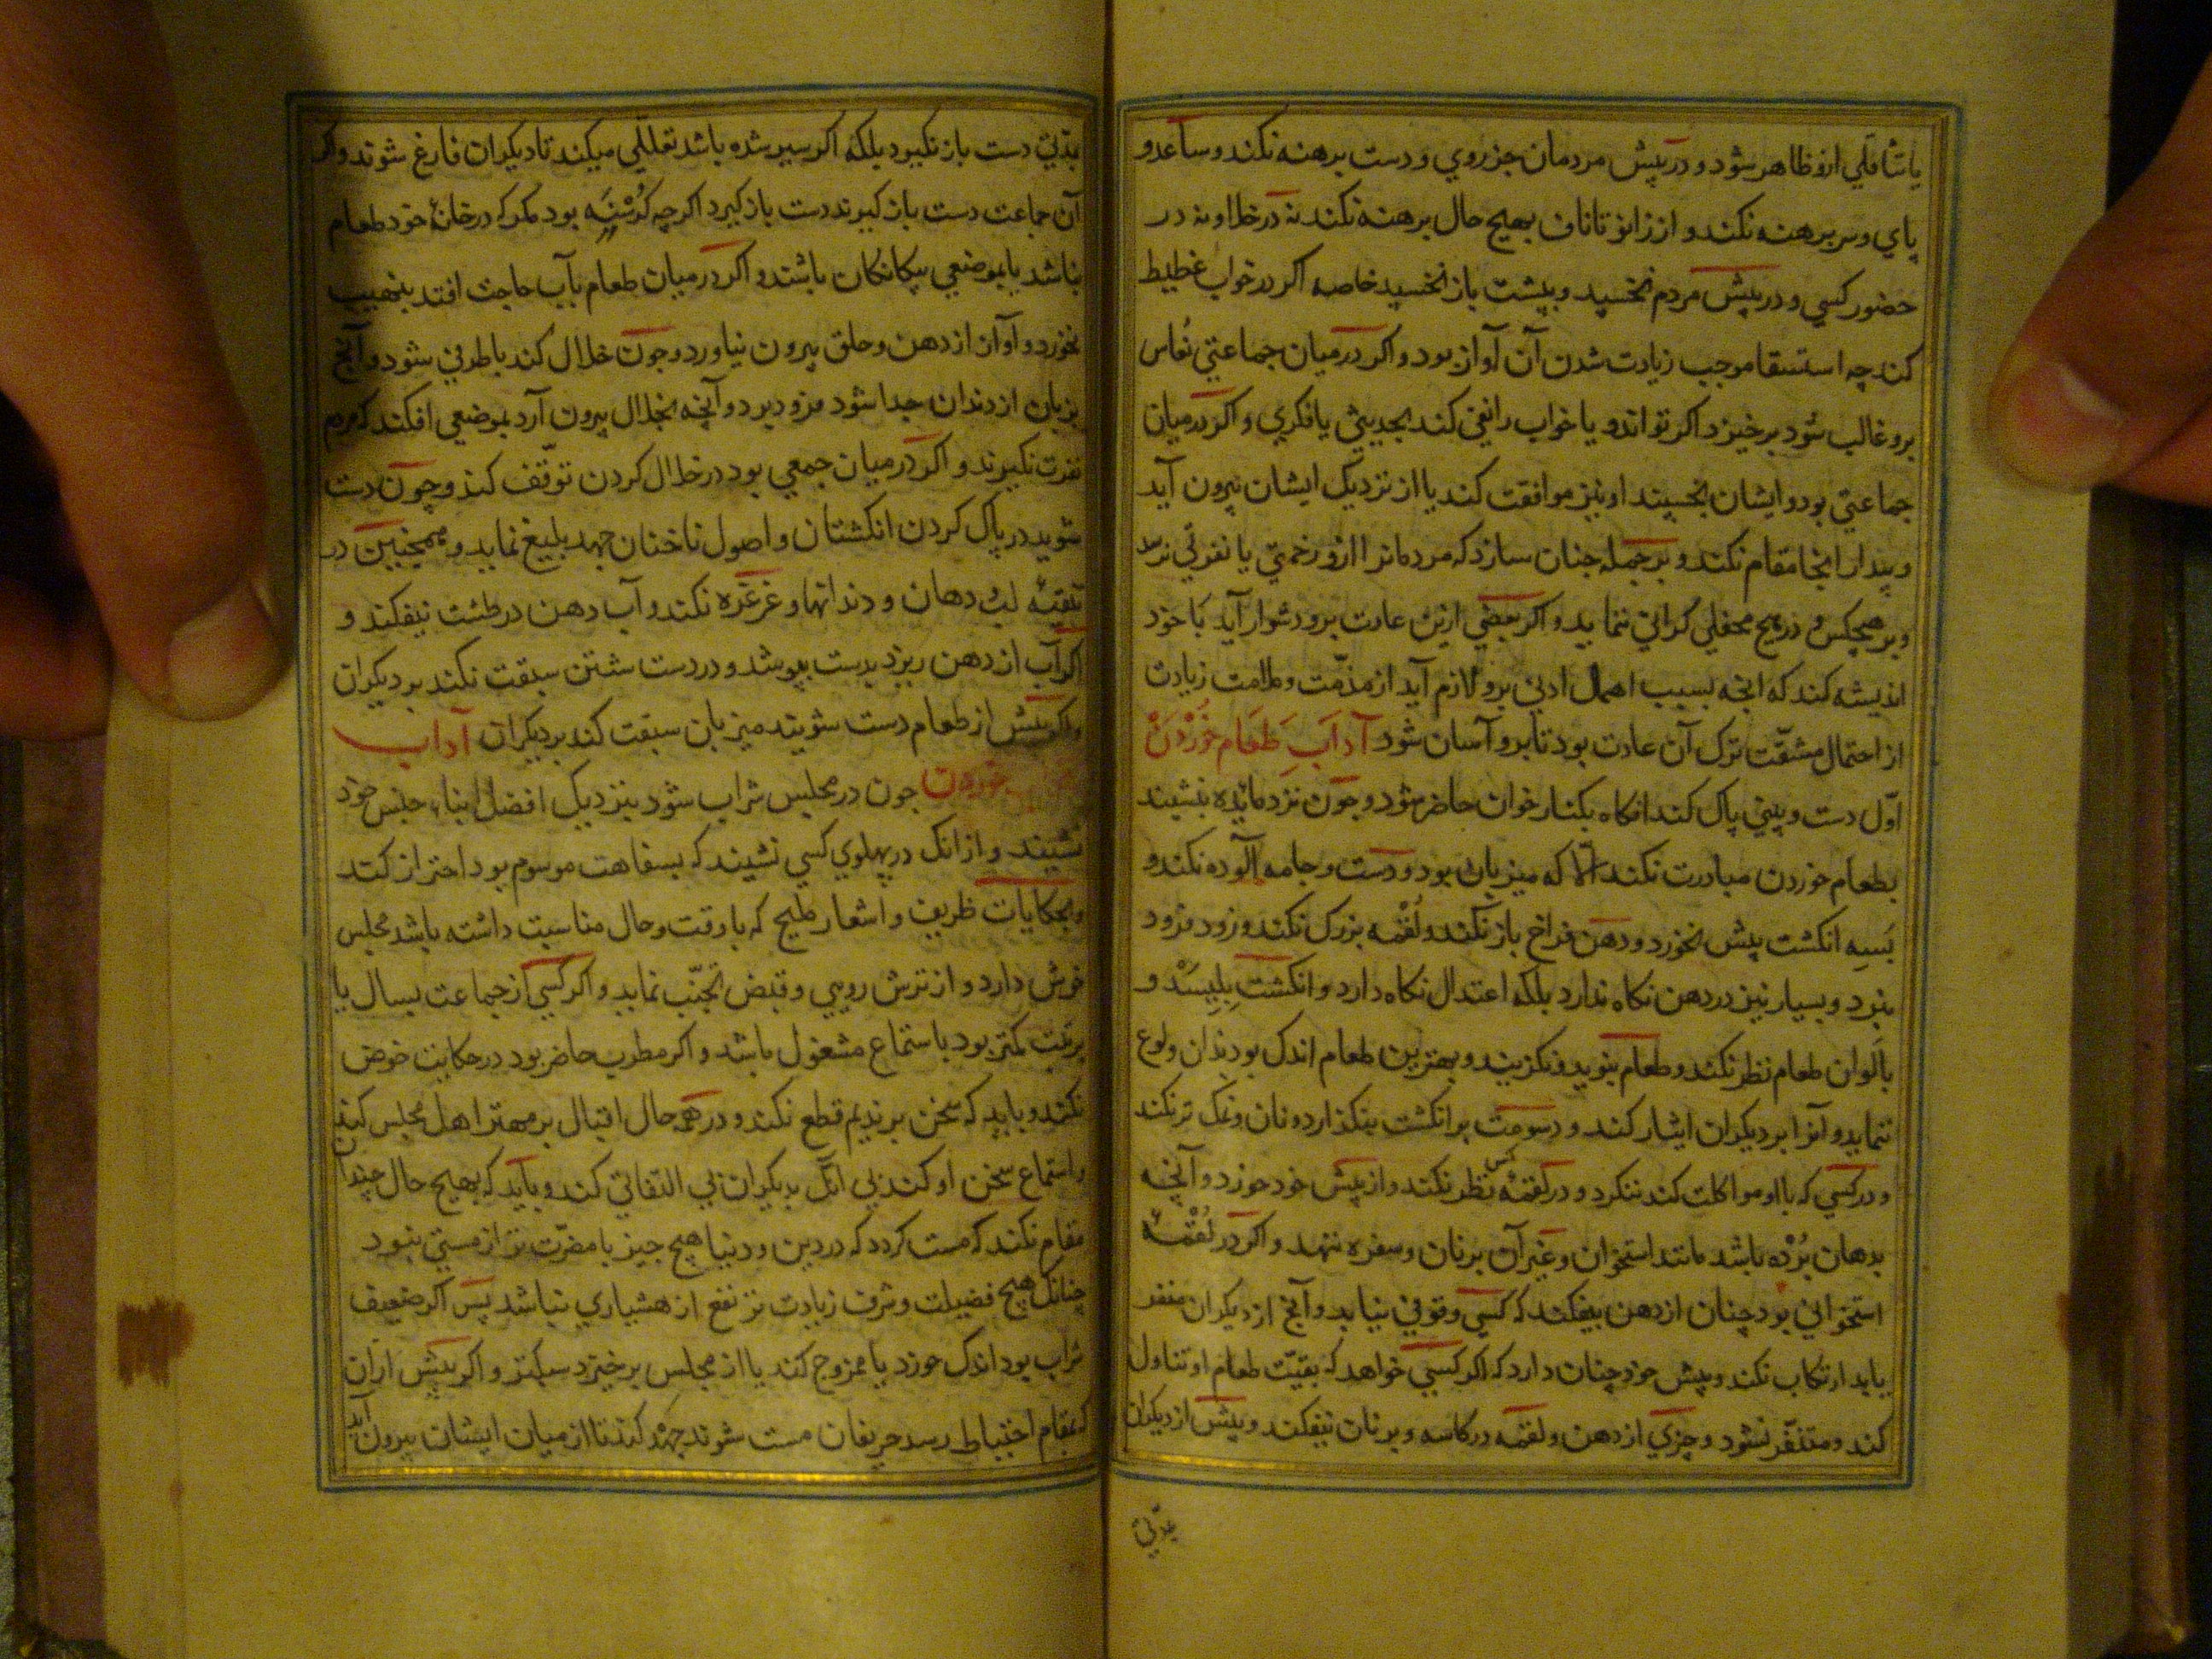 یا تثاقلی ازو ظاهر شود و در پیش مردمان جز روی و دست برهنه نکند و ساعد و
پای و سر برهنه نکند و از زانو تا ناف بهیچ حال برهنه نکند نه در خلا و نه در
حضور کسی و در پیش مردم نخسپد و بپشت باز نخسپد خاصه اکر در خواب غطیط
کند چه استسقا موجب زیادت شدن آن آواز بود و اکر در میان جماعتی نُعاس
برو غالب شود برخیزد اکر تواند و یا خواب را نفی کند بحدیثی یا فکری و اکر در میان
جماعتی بود و ایشان بخسپند او نیز موافقت کند یا از نزدیک ایشان بیرون آید
و بیدار انجا مقام نکند و بر جمله چنان سازد که مردمانرا ازو زحمتی یا نفرتی نرسد
و بر هیچکس و در هیچ محفلی کرانی ننماید و اکر بعضی ازین عادت برو دشوار آید با خود
اندیشه کند که انچه بسبب اهمال ادبی برو لازم آید از مذمّت و ملامت زیادت
از احتمال مشقّت ترک آن عادت بود تا برو آسان شود آداب طَعَام خُوْرْدَنْ
اوّل دست و بینی پاک کند انکاه بکنار خوان حاضر شود و چون نزد مایده بنشیند
بطعام خوردن مبادرت نکند الّا که میزبان بود و دست و جامه آلوده نکند و
بَسِه انکشت بیش نخورد و دهن فراخ باز نکند و لُقْمه بزرک نکند و زود فرو
نبرد و بسیار نیز در دهن نکاه ندارد بلکه اعتدال نکاه دارد و انکشت بِلِیسَدْ و
بالوان طعام نظر نکند و طعام نبوید و نکزیند و بهترین طعام اندک بود بدان ولوع
ننماید و آنرا بر دیکران ایثار کند و دسومت بر انکشت بنکذارد و نان و نمک تر نکند
و در کسی که با او مواکلت کند ننکرد و در لقمه کس نظر نکند و از پیش خود خورد و آنچه
بدهان بُرْده باشد مانند استخوان و غیر آن بر نان و سفره ننهد و اکر در لُقْمهٔ
استخوانی بود چنان از دهن بیفکند که کسی وقوفی نیابد و آنچ از دیکران منفر
یابد ارتکاب نکند و پیش خود چنان دارد که اکر کسی خواهد که بقیّت طعام او تناول
کند و متنفّر نشود و چیزی از دهن و لقمه در کاسه و بر نان نیفکند و پیش از دیکران
بمدّتی
بمدّتی دست باز نکیرد بلکه اکر سیر شده باشد تعلّلی میکند تا دیکران فارغ شوند و اکر
آن جماعت دست باز کیرند دست باز کیرد اکرچه کُرْسْنَه بود مکر که در خانهٔ خود طعام
باشد یا بموضعی بیکانکان باشند و اکر در میان طعام بآب حاجت افتد بنهیب
نخورد و آواز از دهن و حلق بیرون نیاورد و چون خلال کند با طرفی شود و آنچ
بزبان از دندان جدا شود فرو برد و آنچه بخلال بیرون آرد بموضعی افکند که مردم
نفرت نکیرند و اکر در میان جمعی بود در خلال کردن توقّف کند و چون دست
شوید در پاک کردن انکشتان و اصول ناخنان جهد بلیغ نماید و همچنین در
تنقیهٔ لب و دهان و دندانها و غرغره نکند و آب دهن در طشت نیفکند و
اکر آب از دهن ریزد بدست بپوشد و در دست شستن سبقت نکند بر دیکران
و اکر پیش از طعام دست شویند میزبان سبقت کند بر دیکران آداب
خوردن چون در مجلس شراب شود بنزدیک افضل ابناء جنس خود
نشیند و از انک در پهلوی کسی نشیند که بسفاهت موسوم بود احتراز کند
و بحکایات ظریف و اشعار ملیح که با وقت و حال مناسبت داشته باشد مجلس
خوش دارد و از ترش رویی و قبض تجنّب نماید و اکر کسی از جماعت بسال یا
برتبت کمتر بود باستماع مشغول باشد و اکر مطرب حاضر بود در حکایت خوض
نکند و باید که سخن بر ندیم قطع نکند و در همه حال اقبال بر مهتر اهل مجلس کند
و استماع سخن او کند بی انک بدیکران بی التفاتی کند و باید که بهیچ حال چندان
مقام نکند که مست کردد که در دین و دنیا هیچ چیز با مضرّت تر از مستی نبود
چنانک هیچ فضیلت و شرف زیادت تر نفع از هشیاری نباشد پس اکر ضعیف
شراب بود اندک خورد یا ممزوج کند یا از مجلس برخیزد سبکتر و اکر پیش ازان
که بمقام احتیاط رسد حریفان مست شوند جهد کند تا از میان ایشان بیرون آید